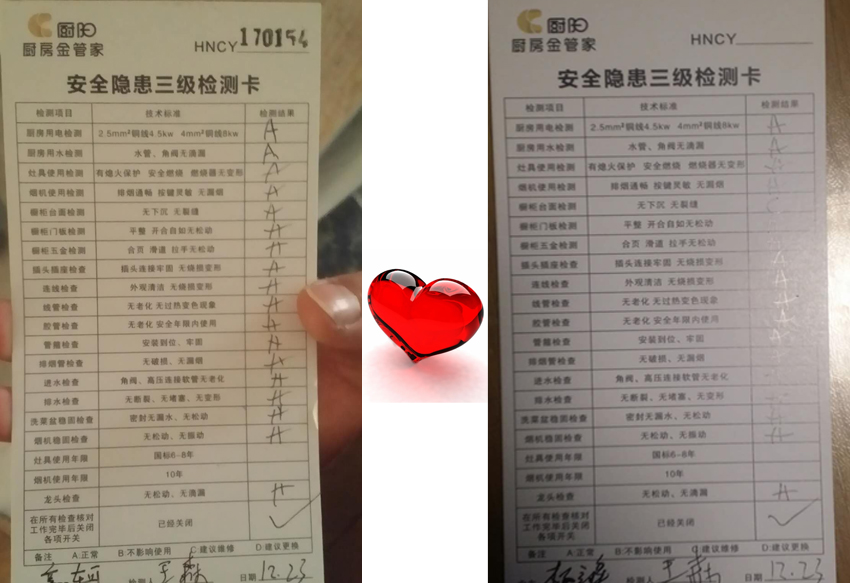 厨阳
厨房金管家
HNCY170154
安全隐患三级检测卡
检测项目 技术标准 检测结果
厨房用电检测 2.5mm²铜线4.5kw 4mm²铜线8kw A
厨房用水检测 水管、角阀无滴漏 A
灶具使用检测 有熄火保护 安全燃烧 燃烧器无变形 A
烟机使用检测 排烟通畅 按键灵敏 无漏烟 A
橱柜台面检测 无下沉 无裂缝 A
橱柜门板检测 平整 开合自如无松动 A
橱柜五金检测 合页 滑道 拉手无松动 A
插头插座检查 插头连接牢固 无烧损变形 A
连线检查 外观清洁 无烧损变形 A
线管检查 无老化 无过热变色现象 A
胶管检查 无老化 安全年限内使用 A
管箍检查 安装到位、牢固 A
排烟管检查 无破损、无漏烟 A
进水检查 角阀、高压连接软管无老化 A
排水检查 无断裂、无堵塞、无变形 A
洗菜盆稳固检查 密封无漏水、无松动 A
烟机稳固检查 无松动、无振动 A
灶具使用年限 国标6-8年
烟机使用年限 10年
龙头检查 无松动、无滴漏 A
在所有检查核对
工作完毕后关闭 已经关闭 ✓
各项开关
备注 A:正常 B:不影响使用 C:建议维修 D:建议更换
检测人 日期 12.23
厨阳
厨房金管家
HNCY
安全隐患三级检测卡
检测项目 技术标准 检测结果
厨房用电检测 2.5mm²铜线4.5kw 4mm²铜线8kw A
厨房用水检测 水管、角阀无滴漏 A
灶具使用检测 有熄火保护 安全燃烧 燃烧器无变形
烟机使用检测 排烟通畅 按键灵敏 无漏烟
橱柜台面检测 无下沉 无裂缝
橱柜门板检测 平整 开合自如无松动
橱柜五金检测 合页 滑道 拉手无松动
插头插座检查 插头连接牢固 无烧损变形
连线检查 外观清洁 无烧损变形 A
线管检查 无老化 无过热变色现象 A
胶管检查 无老化 安全年限内使用
管箍检查 安装到位、牢固
排烟管检查 无破损、无漏烟
进水检查 角阀、高压连接软管无老化
排水检查 无断裂、无堵塞、无变形
洗菜盆稳固检查 密封无漏水、无松动
烟机稳固检查 无松动、无振动 A
灶具使用年限 国标6-8年
烟机使用年限 10年
龙头检查 无松动、无滴漏 A
在所有检查核对
工作完毕后关闭 已经关闭 ✓
各项开关
备注 A:正常 B:不影响使用 C:建议维修 D:建议更换
检测人 日期 12.23